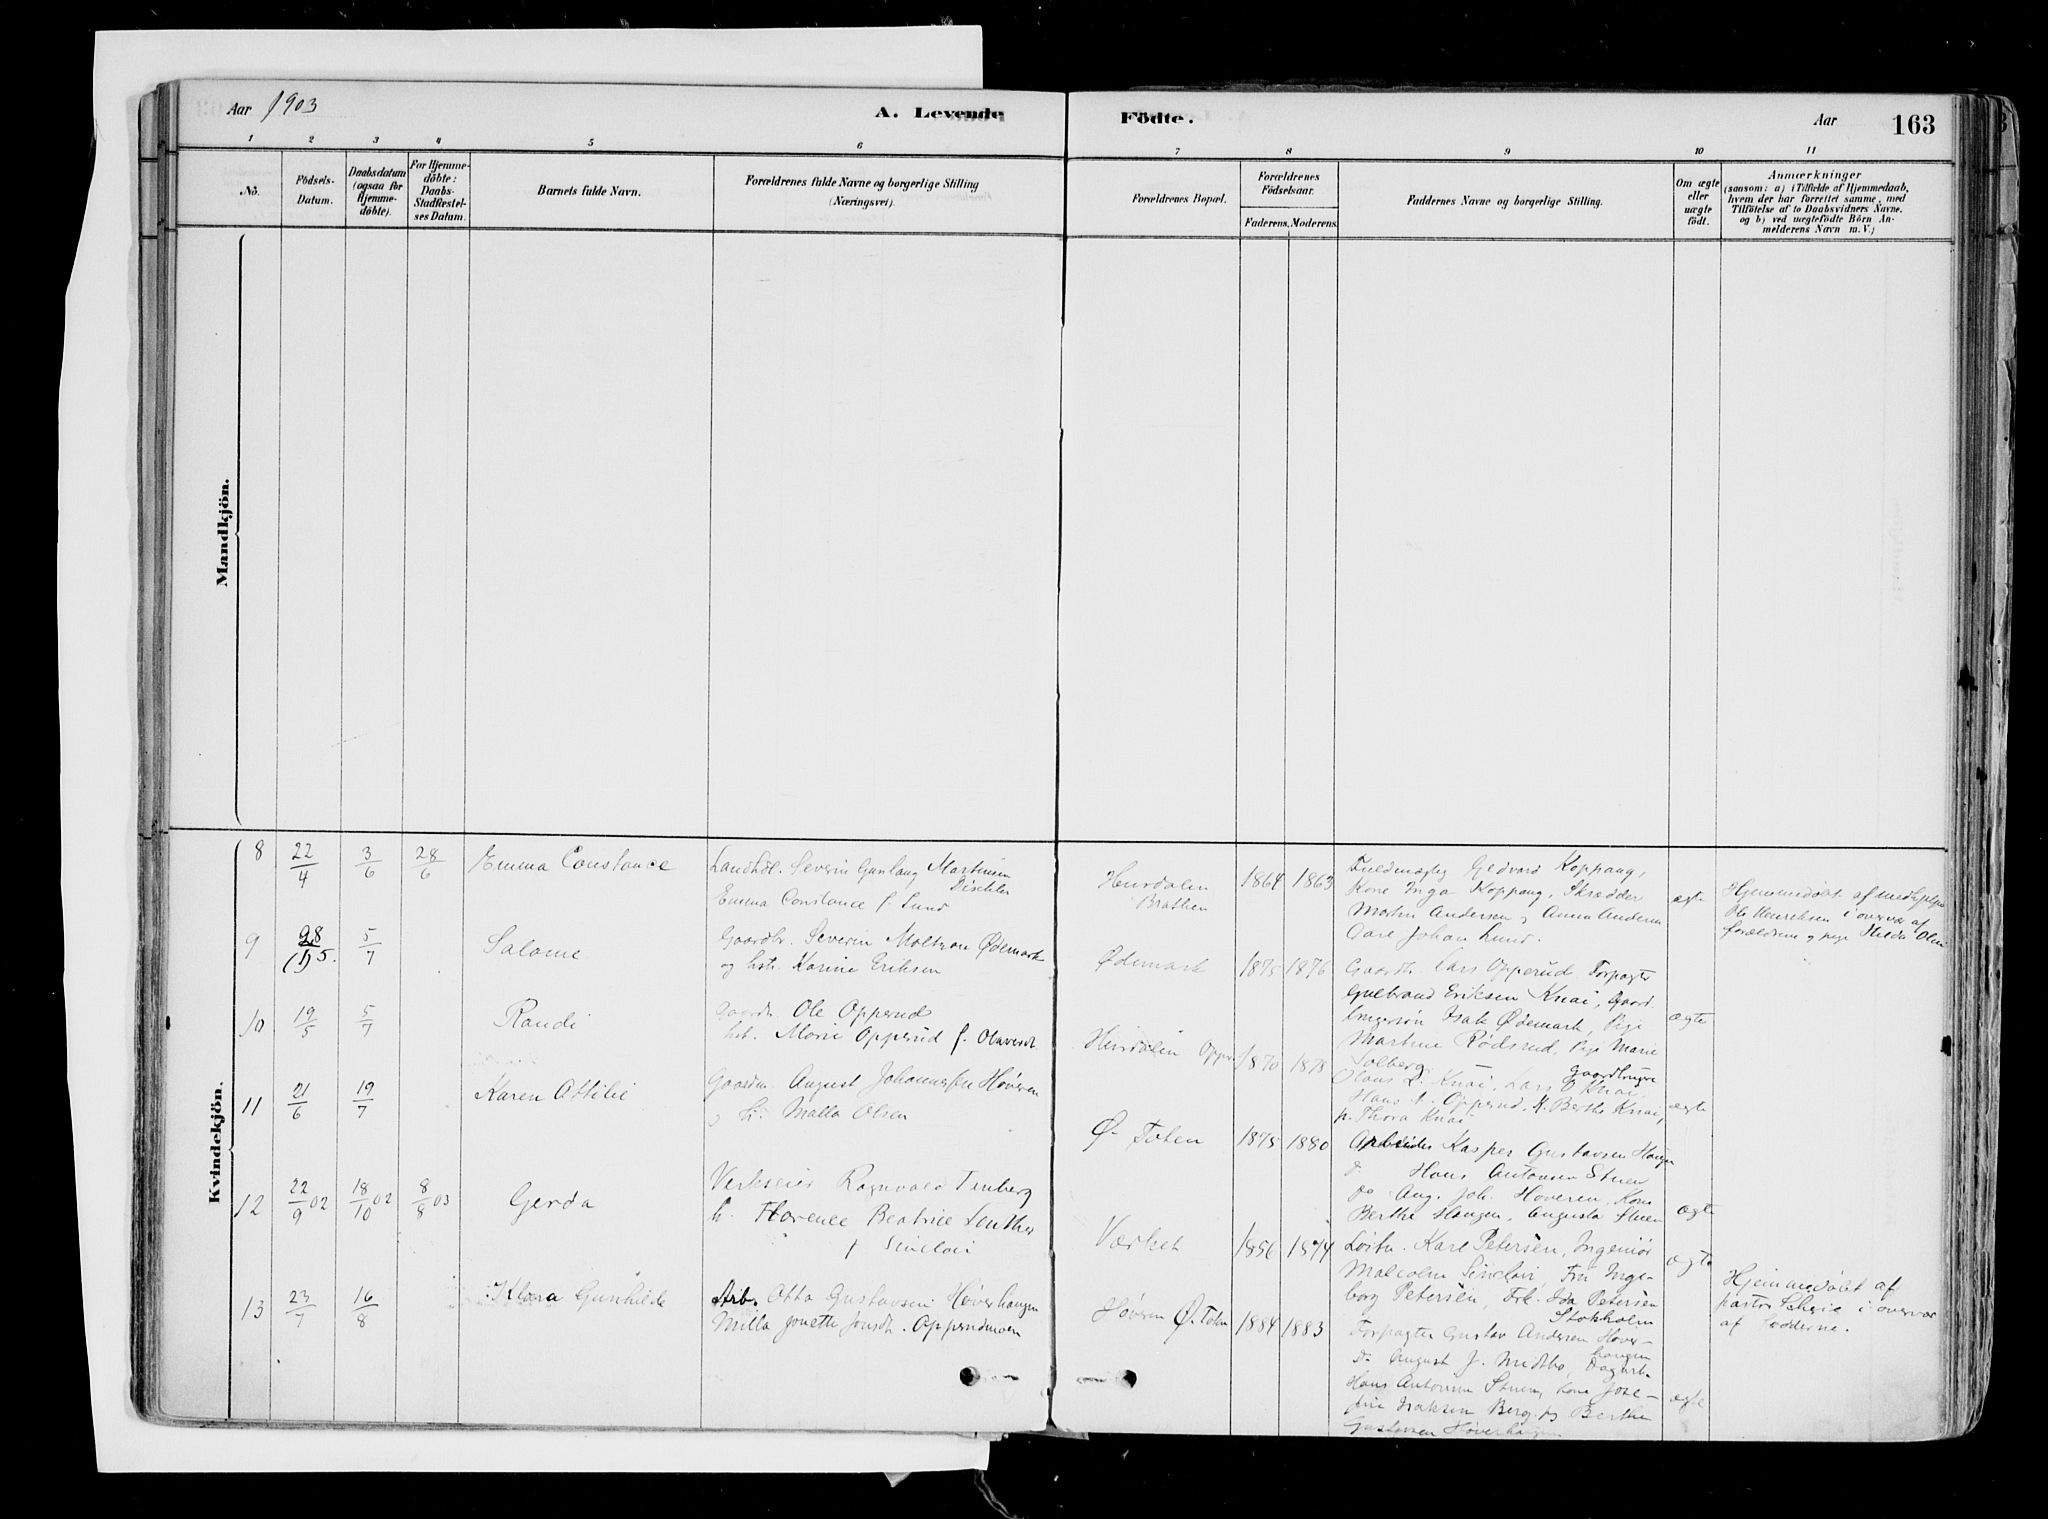 Aar 1903
A. Levende Födte.
Aar
163
1 2 3 4 5 6 7 8 9 10 11
No.
Födsels-
Datum.
Daabsdatum
(ogsaa for
Hjemme-
döbte).
For Hjemme-
döbte:
Daabs-
Stadfæstel-
ses Datum.
Barnets fulde Navn.
Forældrenes fulde Navne og borgerlige Stilling
(Næringsvei).
Forældrenes Bopæl.
Forældrenes
Födselsaar.
Faderens. Moderens.
Faddernes Navne og borgerlige Stilling.
Om ægte
eller
uægte
födt.
Anmærkninger
(saasom: a) i Tilfælde af Hjemmedaab,
hvem der har forrettet samme, med
Tilföielse af to Daabsvidners Navne.
og b) ved uægtefödte Börn An-
melderens Navn m. V.)
Mandkjön.
Kvindekjön.
8
22/4
3/6
28/6
Emma Constance
Landhdl. Severin Gunlaug Martinsen
Emma Constance f. Lund
Hurdalen
Brathen
1864 1863
Fuldmægtig Edvard Koppang,
Kone Inga Koppang, Skrædder
Martin Andersen, Anna Andersen
Carl Johan Lund.
ægte
Hjemmedøbt af medhjelper
Ole Henriksen i overvær af
forældrene og pige Hilda Olsen
9
28
(1) 5.
5/7
Salome
Gaardbr. Severin Moltzon Ødemark
og hst. Karine Eriksen
Ødemark
1875 1876
Gaardbr. Lars Opperud. Forpagter
Gulbrand Eriksen Knai, Gaard
brugersøn Isak Ødemark, Pige
Martine Rødsrud, Pige Marie
Solberg
ægte
10
19/5
5/7
Randi
Gaardbr. Ole Opperud
hst. Marie Opperud f. Olavesdt.
Hurdalen Opper.
1870 1878
Olaus L. Knai, Lars O Knai, Gaardbrugere
Hans A. Opperud, K. Berthe Knai,
p. Thora Knai
ægte
11
21/6
19/7
Karen Ottilie
Gaardm. August Johannessen Høveren
og h. Malla Olsen
Ø. Toten
1875 1880
Arbeider Kasper Gustavsen Haugen
Do Hans Antonsen Stuen
Do Aug. Joh. Høveren, Kone
Berthe Haugen, Augusta Stuen
ægte
12
22/9 02
18/10 02
8/8 03
Gerda
Verkseier Ragnvald Tenberg
h. Florence Beatrice
f Sinclair
Værket
1856 1874
Løitn. Karl Petersen, Ingeniør
Malcolm Sinclair, Fru Inge-
borg Petersen, Frk. Ida Petersen
Stokholm
ægte
13
23/7
16/8
Klara Gunhilde
Arb. Otto Gustavsen Høverhaugen
Milla Jonette Jonsdt. Opperudmoen
Høveren Ø. Toten
1884 1883
Forpagter Gustav Andersen Høver-
haugen
Do August J. Midtbø, Dagarb.
Hans Antonsen Stuen, Kone Jose-
fine Isaksen Berg, pg Berthe
Gustavsen Høverhaugen
ægte
Hjemmedøbt af
pastor i overvær
af Fadderne.